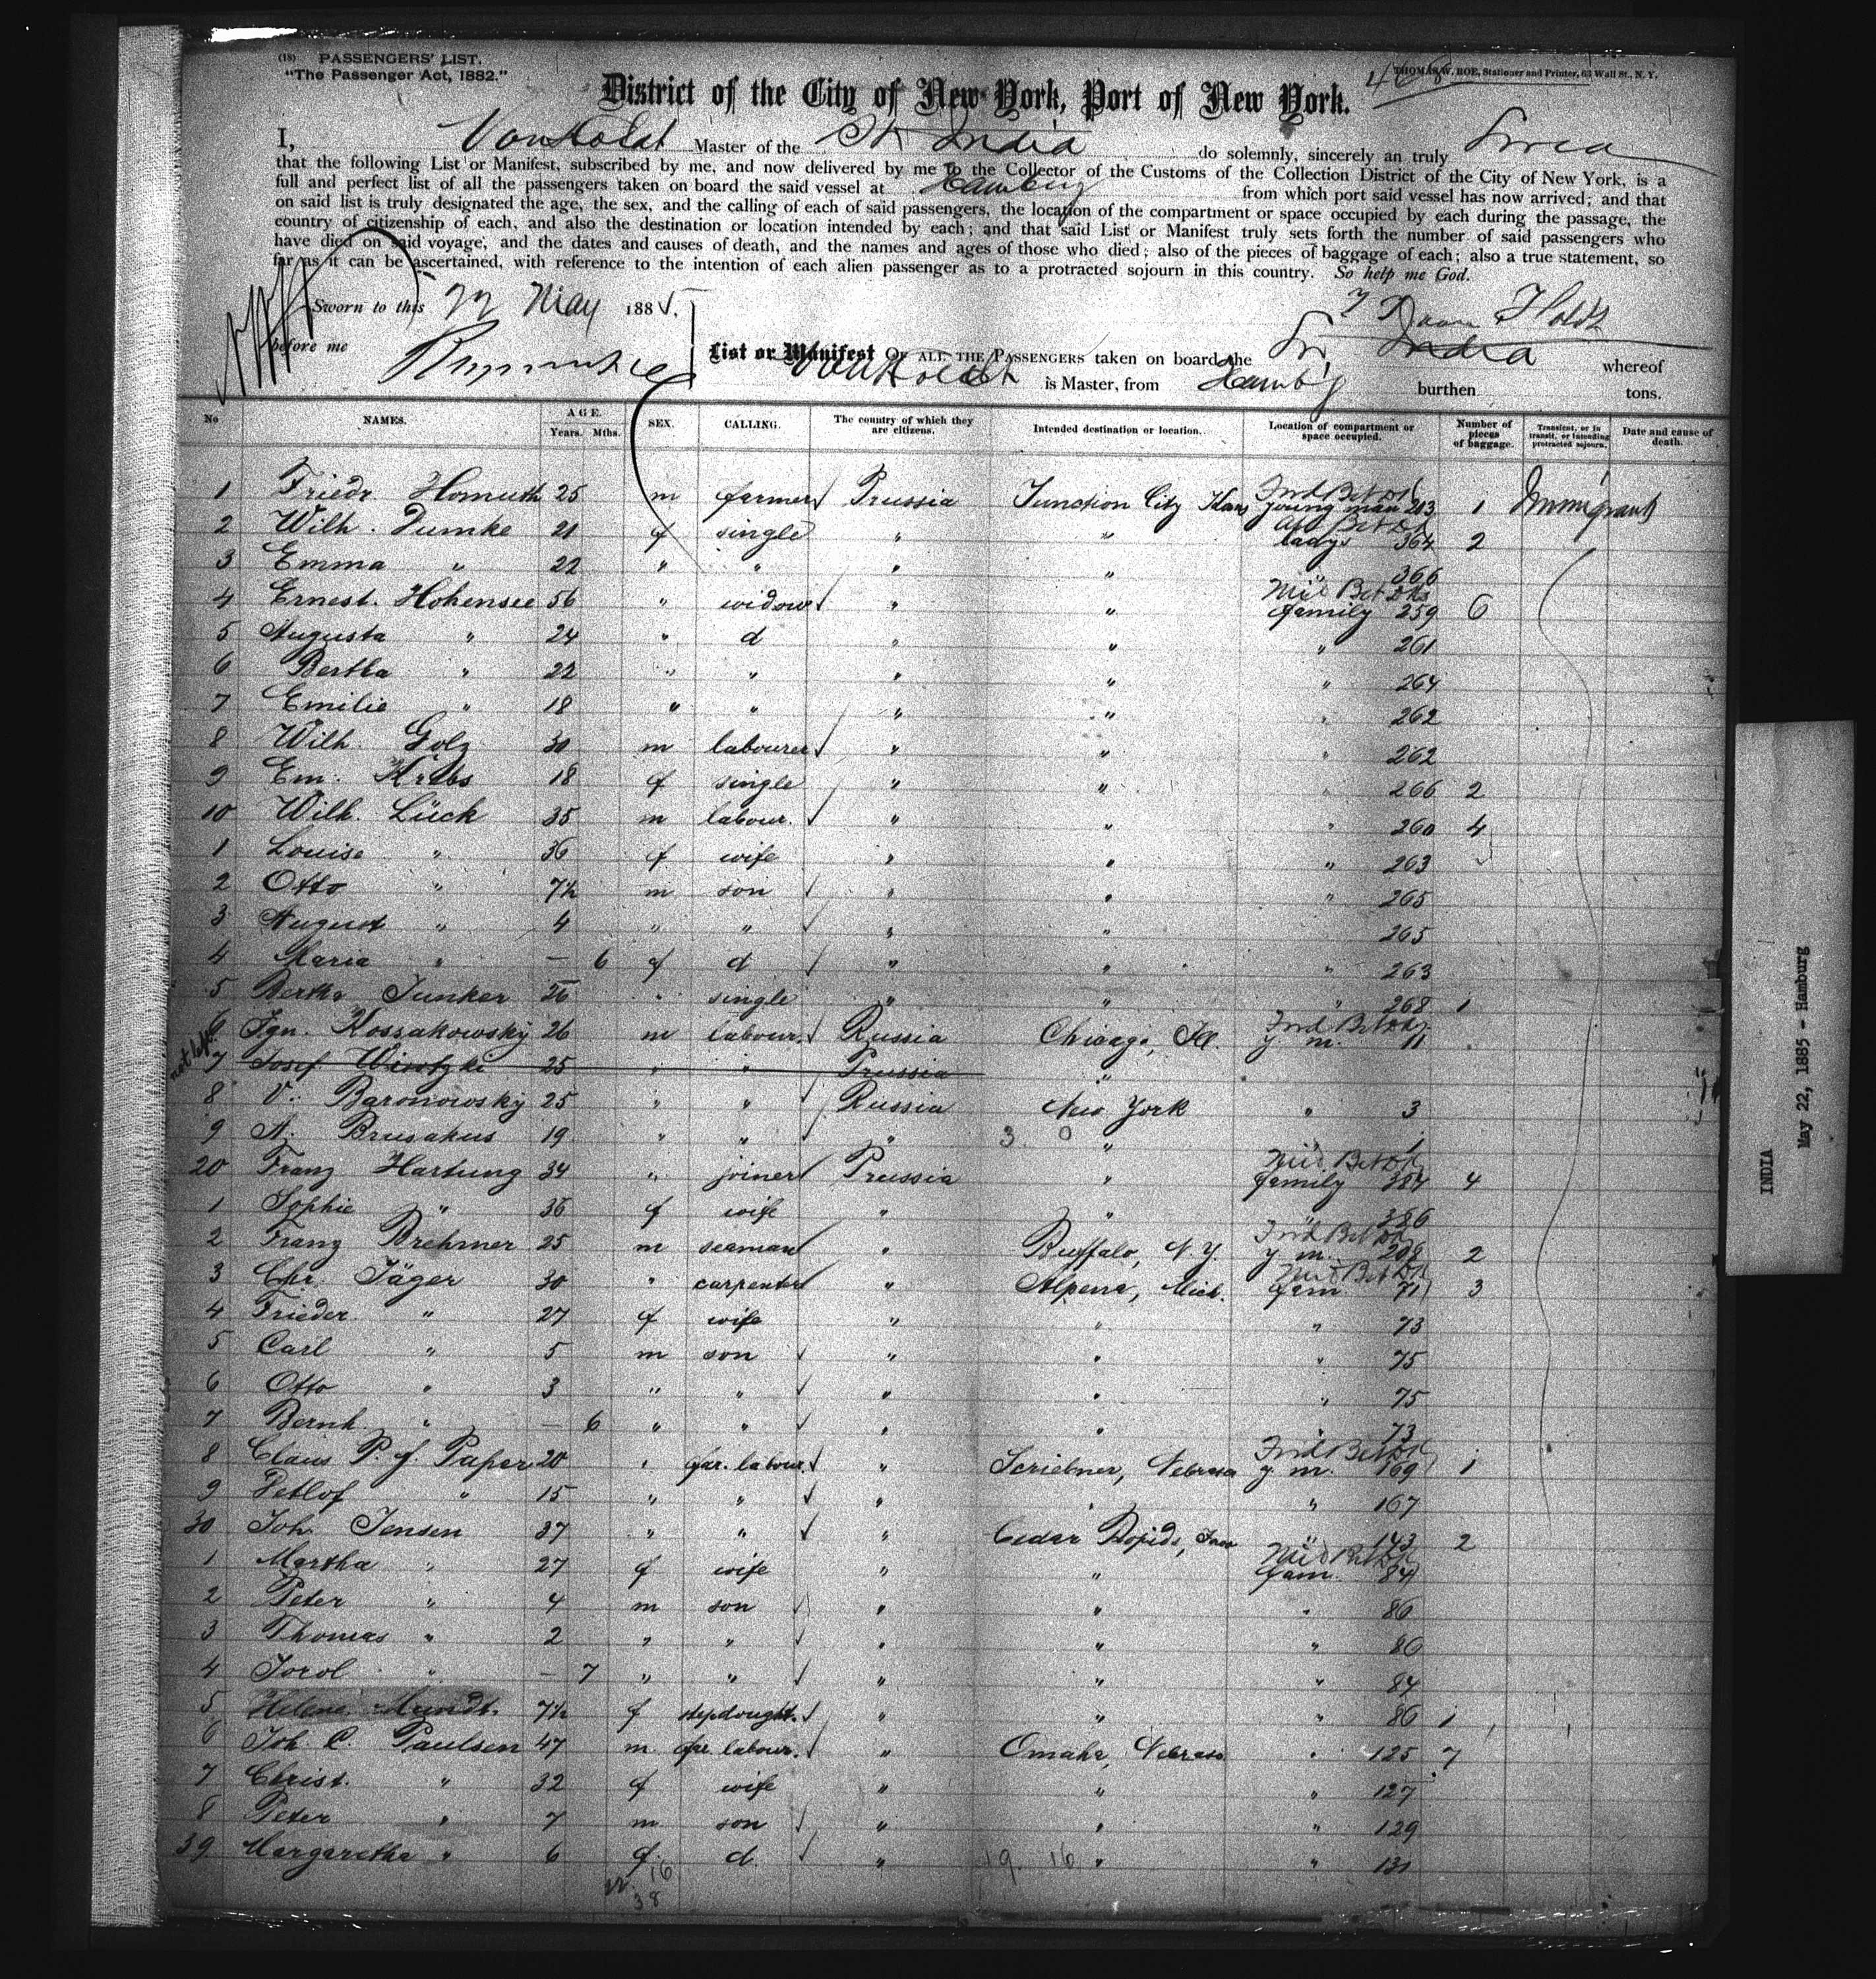 (18) PASSENGERS' LIST.
"The Passenger Act, 1882."
THOMAS W. ROE, Stationer and Printer, 63 Wall St., N. Y.
District of the City of New York, Port of New York.
I, Von Holdt Master of the St India do solemnly, sincerely an truly
that the following List or Manifest, subscribed by me, and now delivered by me to the Collector of the Customs of the Collection District of the City of New York, is a
full and perfect list of all the passengers taken on board the said vessel at Hamburg from which port said vessel has now arrived; and that
on said list is truly designated the age, the sex, and the calling of each of said passengers, the location of the compartment or space occupied by each during the passage, the
country of citizenship of each, and also the destination or location intended by each; and that said List or Manifest truly sets forth the number of said passengers who
have died on said voyage, and the dates and causes of death, and the names and ages of those who died; also of the pieces of baggage of each; also a true statement, so
far as it can be ascertained, with reference to the intention of each alien passenger as to a protracted sojourn in this country. So help me God.
Sworn to this 22 May 1885. Holdt
before me
List or Manifest OF ALL THE PASSENGERS taken on board the India whereof
Von Holdt is Master, from Hambg burthen tons.
No NAMES. AGE. Years. Mths. SEX. CALLING. The country of which they are citizens. Intended destination or location. Location of compartment or space occupied. Number of pieces of baggage. Transient, or in transit, or intending protracted sojourn. Date and cause of death.
1 Friedr. Homuth 25 m farmer Prussia Junction City Kans Bet Dk young man 213 1 Immigrant
2 Wilh. Dumke 21 f single " " Bet Dk ladys 364 2
3 Emma " 22 " " " " " 366
4 Ernest. Hohensee 56 " widow " " Mid Bet Dks family 259 6
5 Augusta " 24 " d " " " 261
6 Bertha " 22 " " " " " 264
7 Emilie " 18 " " " " " 262
8 Wilh. Golz 30 m labourer " " " 262
9 Em. Krebs 18 f single " " " 266 2
10 Wilh. Lück 35 m labour. " " " 260 4
1 Louise " 36 f wife " " " 263
2 Otto " 7½ m son " " " 265
3 August " 4 " " " " 265
4 Maria " — 6 f d " " " 263
5 Bertha Junker 26 " single " " " 268 1
6 Ign. Kossakowsky 26 m labour. Russia Chicago, Ill. Bet Dk y. m. 11
not left 7 Josef Wisotzki 25 " " Prussia "
8 V. Baronowsky 25 " " Russia New York " 3
9 A. Brusakus 19 " " " " 1
20 Franz Hartung 34 " joiner Prussia " Mid. Bet Dk family 384 4
1 Sophie " 36 f wife " " " 386
2 Franz Brehmer 25 m seaman " Buffalo, N. Y. Bet Dk y. m. 208 2
3 Chr. Jäger 30 " carpenter " Alpena, Mich. Mid Bet Dk fam. 71 3
4 Frieder. " 27 f wife " " " 73
5 Carl " 5 m son " " " 75
6 Otto " 3 " " " " " 75
7 Bernh. " — 6 " " " " " 73
8 Claus P. J. Paper 20 " far. labour. " Scriebner, Nebrasa Bet Dk y. m. 169 1
9 Detlof " 15 " " " " " 167
30 Joh. Jensen 37 " " " Cedar Rapids, Iowa " 143 2
1 Martha " 27 f wife " " Mid Bet Dk fam. 84
2 Peter " 4 m son " " " 86
3 Thomas " 2 " " " " " 86
4 Jorol " — 7 " " " " " 84
5 Helene Mundt. 7½ f stepdought. " " " 86 1
6 Joh. C. Paulsen 47 m far. labour. " Omaha, Nebrasa " 125 7
7 Christ. " 32 f wife " " " 127
8 Peter " 7 m son " " " 129
39 Margaretha " 6 f d. " " " 131
16
38
19. 16
INDIA
May 22, 1885 - Hamburg